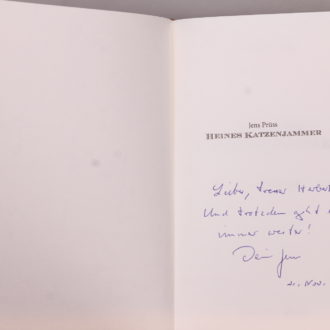 Jens Prüss
HEINES KATZENJAMMER
Lieber, treuer Herbert
Und trotzdem geht
immer weiter!
Dein Jens
Nov.